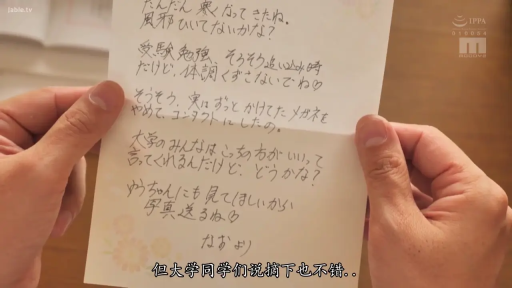 jable.tv
IPPA
だんだん寒くなってきたね。
風邪ひいてないかな？
受験勉強 そろそろ追い込み時
だけど、体調くずさないでね♡
そうそう、実はずっとかけてたメガネを
やめて、コンタクトにしたの。
大学のみんなはこっちの方がいいって
言ってくれるんだけど、どうかな？
ゆうちゃんにも見てほしいから
写真送るね♡
なおより
但大学同学们说摘下也不错..